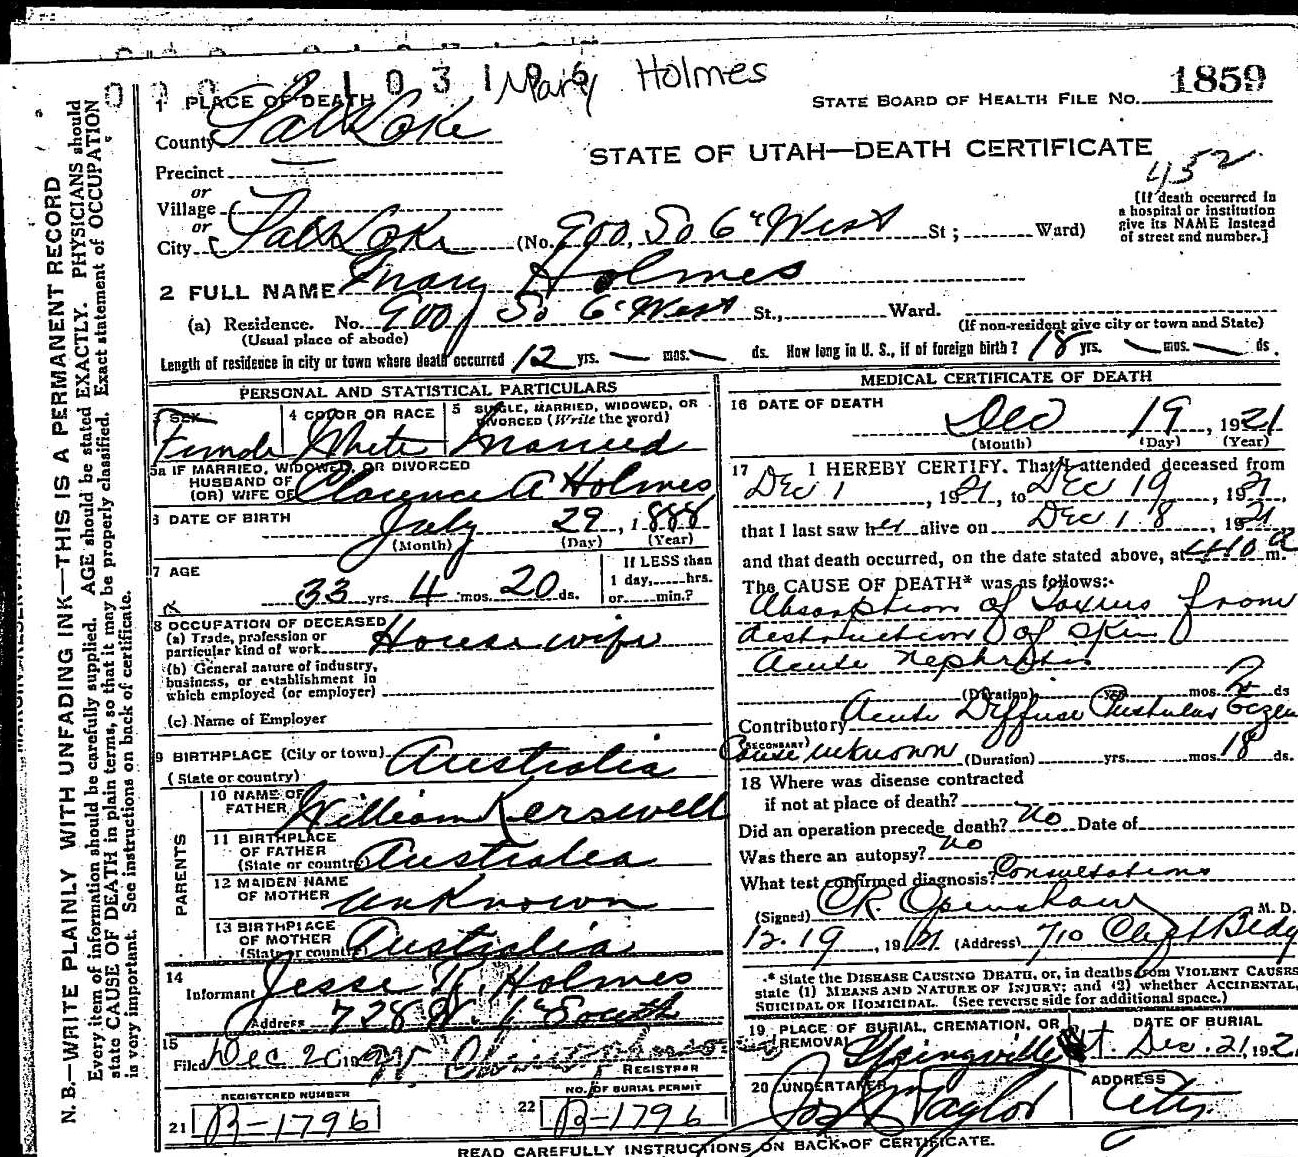 Mary Holmes
1859
STATE BOARD OF HEALTH FILE NO.
1 PLACE OF DEATH
County Salt Lake
STATE OF UTAH—DEATH CERTIFICATE
452
Precinct
or
Village
or
City Salt Lake (No. 900 So 6" West St; Ward)
[If death occurred in
a hospital or institution
give its NAME instead
of street and number.]
2 FULL NAME Mary Holmes
(a) Residence. No. 900 So 6" West St., Ward.
(Usual place of abode) (If non-resident give city or town and State)
Length of residence in city or town where death occurred 12 yrs. — mos. — ds. How long in U. S., if of foreign birth? 18 yrs. — mos. — ds.
PERSONAL AND STATISTICAL PARTICULARS
3 SEX Female
4 COLOR OR RACE White
5 SINGLE, MARRIED, WIDOWED, OR DIVORCED (Write the word) Married
5a IF MARRIED, WIDOWED, OR DIVORCED
HUSBAND OF
(OR) WIFE OF Clarence A Holmes
6 DATE OF BIRTH July 29, 1888
(Month) (Day) (Year)
7 AGE 33 yrs. 4 mos. 20 ds.
If LESS than
1 day, hrs.
or min.?
8 OCCUPATION OF DECEASED
(a) Trade, profession or
particular kind of work House wife
(b) General nature of industry,
business, or establishment in
which employed (or employer)
(c) Name of Employer
9 BIRTHPLACE (City or town) Australia
(State or country)
PARENTS
10 NAME OF
FATHER William Kerswell
11 BIRTHPLACE
OF FATHER
(State or country) Australia
12 MAIDEN NAME
OF MOTHER unknown
13 BIRTHPLACE
OF MOTHER
(State or country) Australia
14 Informant Jesse R. Holmes
Address 728 W. 1st South
15 Filed Dec 20 19
REGISTRAR
REGISTERED NUMBER
21 B-1796
NO. OF BURIAL PERMIT
22 B-1796
MEDICAL CERTIFICATE OF DEATH
16 DATE OF DEATH Dec 19, 1921
(Month) (Day) (Year)
17 I HEREBY CERTIFY. That I attended deceased from
Dec 1, 1921, to Dec 19, 1921
that I last saw her alive on Dec 18, 1921
and that death occurred, on the date stated above, at 4 40 a m.
The CAUSE OF DEATH* was as follows:
Absorption of Toxins from
destruction of skin
Acute nephritis
(Duration) yrs mos. 2 ds
Contributory Acute Diffuse Pustular Eczem
(SECONDARY)
Cause unknown (Duration) yrs. mos. 18 ds.
18 Where was disease contracted
if not at place of death?
Did an operation precede death? no Date of
Was there an autopsy? no
What test confirmed diagnosis? Consultations
(Signed) CR Openshaw M. D.
12-19, 1921 (Address) 710 Clift Bldg
* State the DISEASE CAUSING DEATH, or, in deaths from VIOLENT CAUSES
state (1) MEANS AND NATURE OF INJURY; and (2) whether ACCIDENTAL,
SUICIDAL OR HOMICIDAL. (See reverse side for additional space.)
19 PLACE OF BURIAL, CREMATION, OR
REMOVAL Springville Ut.
DATE OF BURIAL
Dec. 21, 192
20 UNDERTAKER Taylor
ADDRESS City
READ CAREFULLY INSTRUCTIONS ON BACK OF CERTIFICATE.
N. B.—WRITE PLAINLY WITH UNFADING INK—THIS IS A PERMANENT RECORD
Every item of information should be carefully supplied. AGE should be stated EXACTLY. PHYSICIANS should
state CAUSE OF DEATH in plain terms, so that it may be properly classified. Exact statement of OCCUPATION
is very important. See instructions on back of certificate.